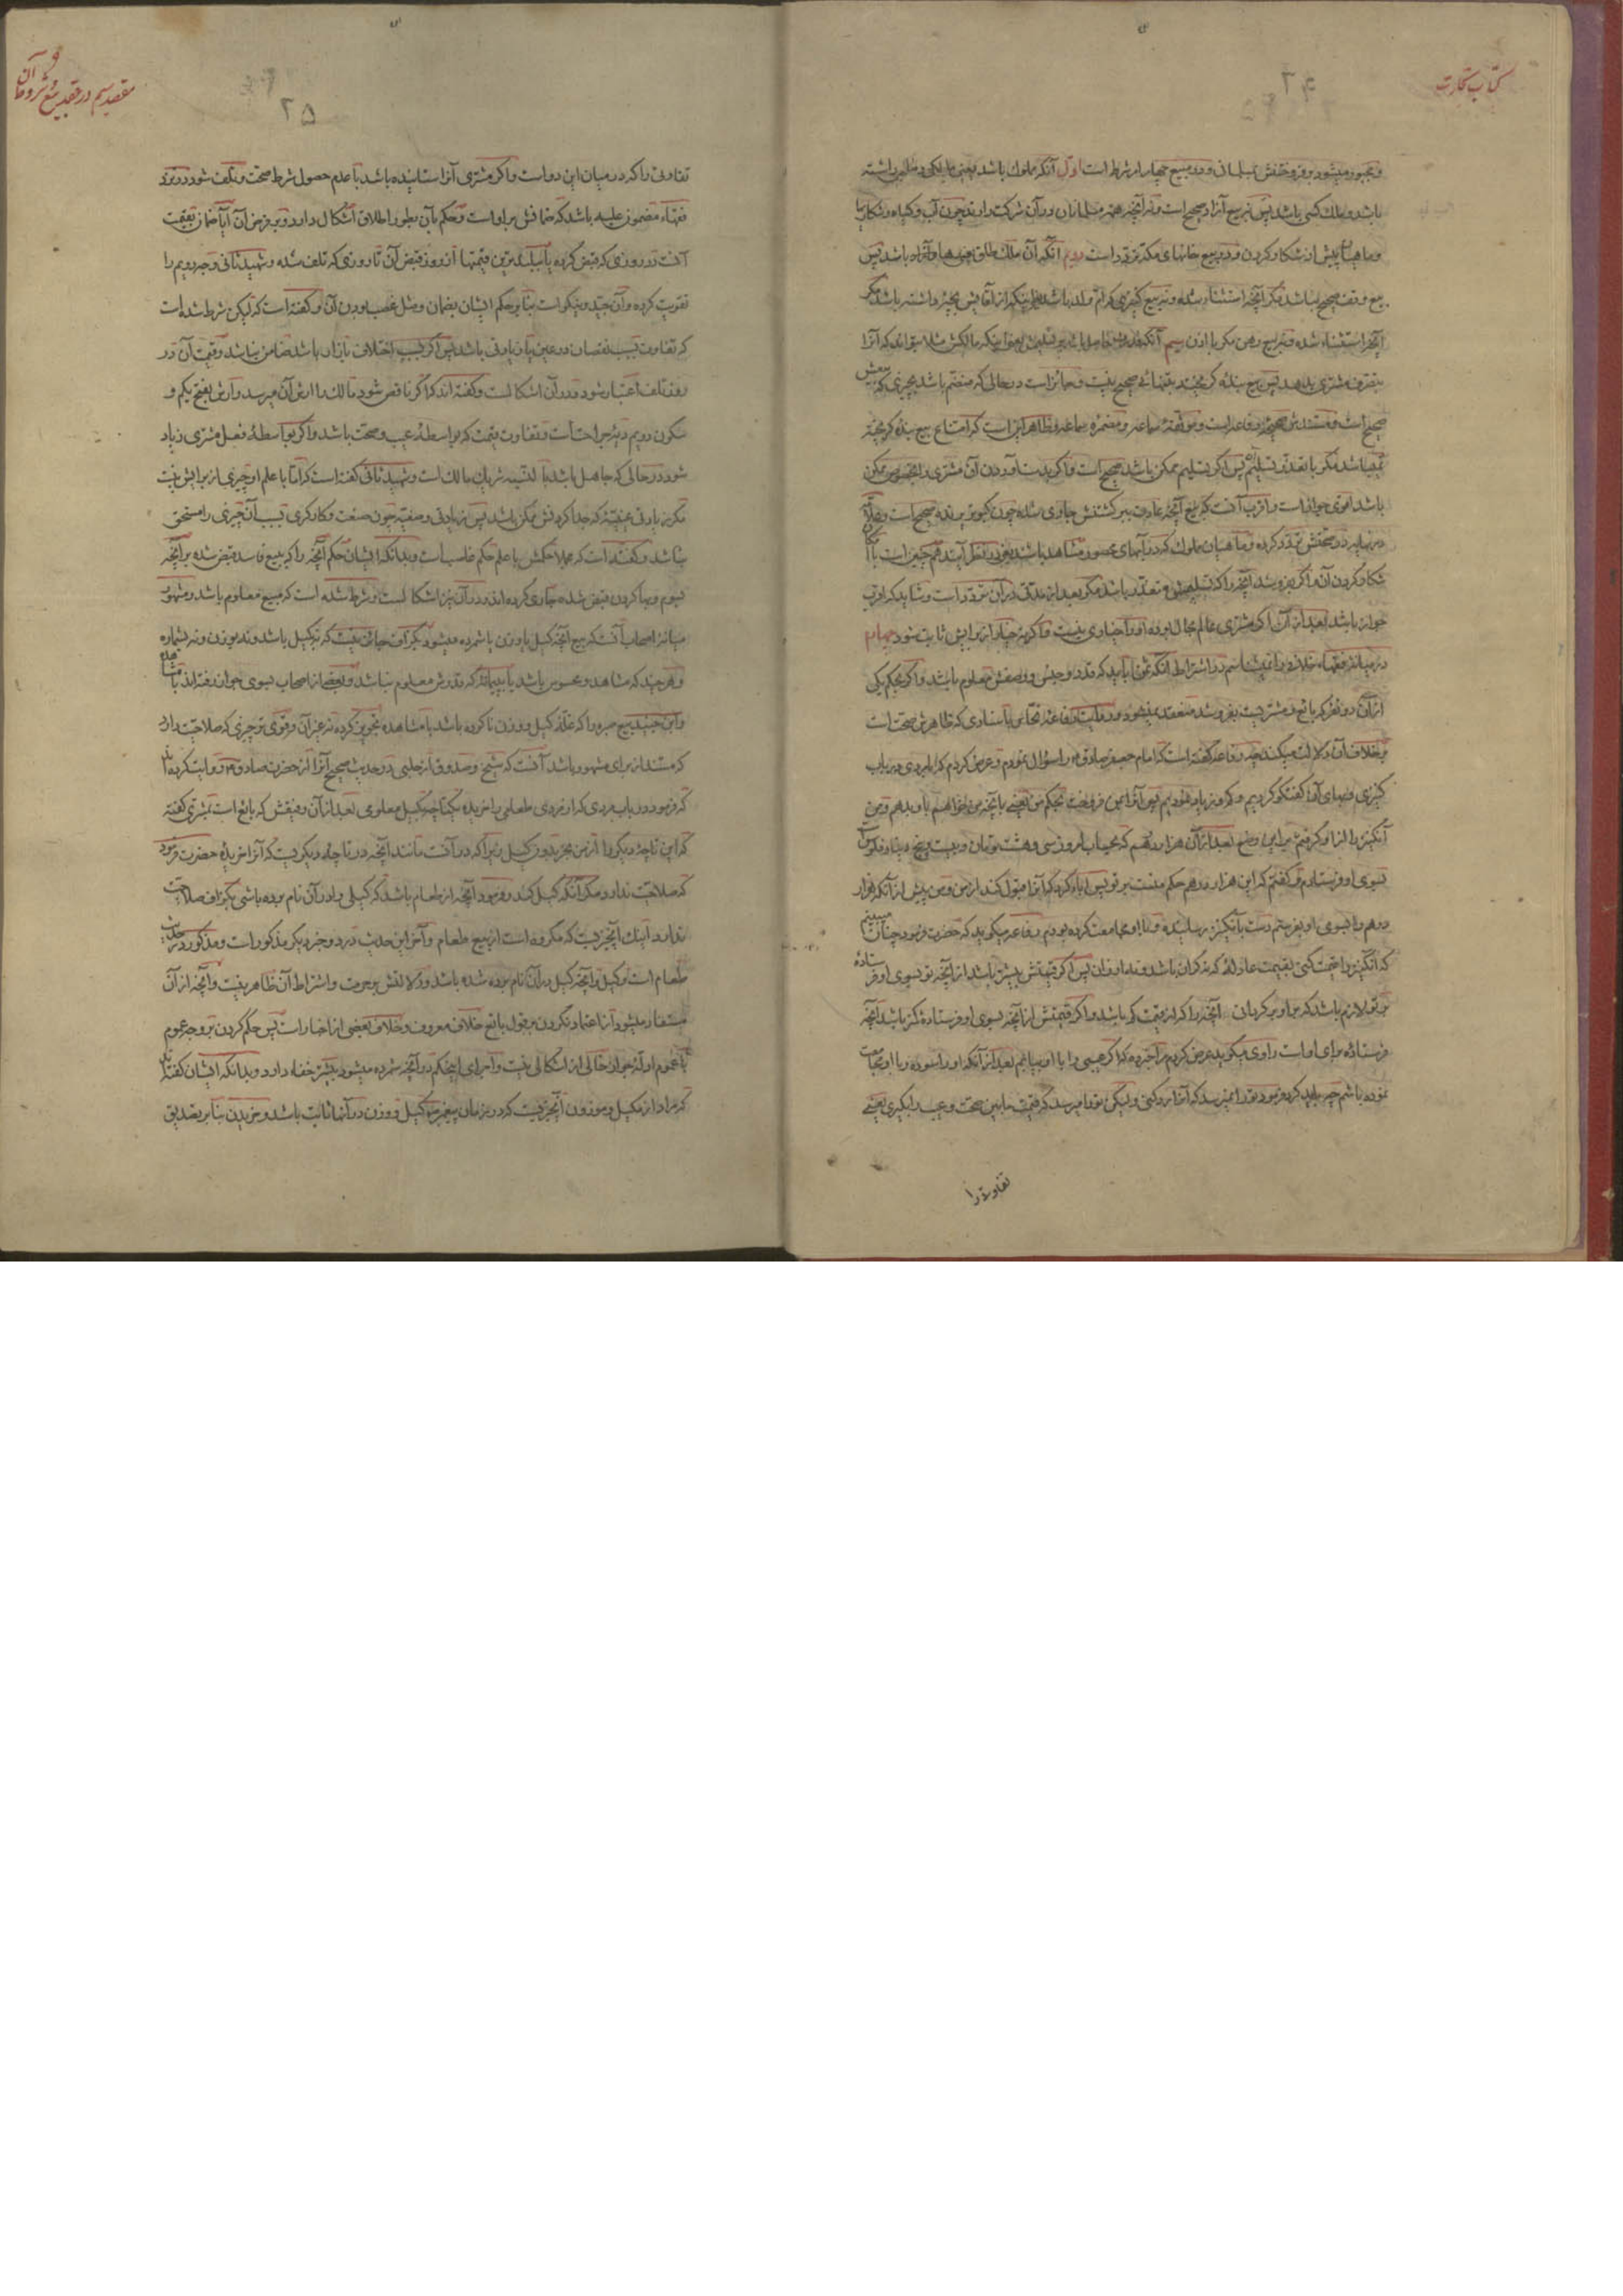 کتاب تجارت
۲۴
و مجبور میشود بفروختنش بمسلمانی و در مبیع چهار امر شرط است اوّل آنکه مملوک باشد یعنی مالکی داشته
باشد و ملک کسی باشد پس نه بیع آزاد صحیح است و نه آنچه همه مسلمانان در آن شرکت دارند چون آب و گیاه و شکارها
و ماهیان پیش از شکار کردن و در بیع خانهای مکه تردّد است دویم آنکه آن ملک طلق باشد پس
بیع وقف صحیح نباشد مگر آنچه استثناء شده و نه بیع کنیزی که امّ ولد باشد باینکه از آقایش بچه داشته باشد مگر
آنچه استثناء شده و نه بیع رهن مگر باذن سیم آنکه قدرت حاصل باشد بر تسلیمش باینکه مالکش مثلا بتواند که آنرا
بتصرف مشتری بدهد پس بیع بنده گریخته بتنهائی صحیح نیست و جائز است در حالی که منضم باشد بچیزی که بیعش
صحیح است و مستندش صحیحه رفاعه است و موثقه سماعه و مضمره سماعه و ظاهر این است که امتناع بیع بنده گریخته
نمیباشد مگر با تعذر تسلیم پس اگر تسلیم ممکن باشد صحیح است و اگر بدست آوردن آن مشتری را بخصوص ممکن
باشد اقوی جواز است و اقرب آنست که بیع آنچه عادت ببرگشتنش جاری شده چون کبوتر پرنده صحیح است و علامه
در نهایه در صحتش تردّد کرده و ماهیان مملوک که در آبهای محصور مشاهد باشد یعنی بنظر آیند هم چنین است با امکان
شکار کردن آن و اگر بفروشد آنچه را که تسلیمش متعذر باشد مگر بعد از مدتی در آن تردّد است و شاید که اقرب
جواز باشد بعد از آن اگر مشتری عالم بحال بوده او را خیاری نیست و اگر نه خیار از برایش ثابت شود چهارم
در میانه فقهاء خلافی را نمیشناسم در اشتراط آنکه ثمن باید که قدر و جنس و وصفش معلوم باشد و اگر بحکم یکی
از آن دو نفر که بائع و مشتریست بفروشد منعقد نمیشود و روایت رفاعه نخّاس باسنادی که ظاهرش صحت است
بخلاف آن دلالت میکند چه رفاعه گفته است که امام جعفر صادق ع را سؤال نمودم و عرض کردم که با مردی در باب
کنیزی و بهای آن گفتگو کردیم و کم و زیاد نمودیم پس آنرا بمن فروخت بحکم من یعنی بآنچه من خواهم باو بدهم و من
آنکنیز را از او گرفتم بر این وضع بعد از آن هزار درهم که بحساب امروز سی و هشت تومان و بیست و پنج دینار فلوس است
بسوی او فرستادم و گفتم که این هزار درهم حکم منست بر تو پس اباء کرد که آنرا قبول کند از من و من پیش از آنکه هزار
درهم را بسوی او بفرستم دست بآنکنیز رسانیده و با او مجامعت کرده بودم رفاعه میگوید که حضرت فرمود چنان میبینم
که آنکنیز را قیمت کنی بقیمت عادله که نه گران باشد و نه ارزان پس اگر قیمتش بیشتر باشد از آنچه تو بسوی او فرستاده
بر تو لازم باشد که بر او برگردانی آنچه را که از قیمت کم باشد و اگر قیمتش از آنچه بسوی او فرستاده کمتر باشد آنچه
فرستاده برای او است راوی میگوید عرض کردم مرا خبر ده که اگر عیبی را با او بیابم بعد از آنکه او را سوده و با او مجامعت
نموده باشم چه باید کرد فرمود ترا نمیرسد که آنرا رد کنی و لیکن ترا میرسد که قیمت مابین صحت و عیب را بگیری یعنی
تفاوتی را
مقصد سیم در عقد بیع و شروط آن
۲۵
تفاوتی را که در میان این دو است و اگر مشتری آنرا ستانیده باشد با عدم حصول شرط صحت و تلف شود در نزد
فقهاء مضمون علیه باشد که ضمانش بر او است و حکم بآن بطور اطلاق اشکال دارد و بر فرض آن آیا ضمان بقیمت
آنست در روزی که قبض کرده یا ببلندترین قیمتها از روز قبض آن تا روزی که تلف شده و شهید ثانی وجه دویم را
تقویت کرده و آن جیّد و نیکو است بنا بر حکم ایشان بضمان و مثل غصب بودن آن و گفته است که لیکن شرط شده است
که تفاوت بسبب نقصان در عین یا زیادتی باشد پس اگر بسبب اختلاف بازار باشد ضامن نباشد و قیمت آن در
روز تلف اعتبار شود و در آن اشکالست و گفته‌اند که اگر ناقص شود مالک را ارش آن میرسد و ارش بفتح یکم و
سکون دویم دیه جراحتست و تفاوت قیمت که بواسطه عیب و صحت باشد و اگر بواسطه فعل مشتری زیاد
شود در حالی که جاهل باشد بالنسبه شریک مالک است و شهید ثانی گفته است که امّا با علم او چیزی از برایش نیست
مگر زیادتی عینیّه که جدا کردنش ممکن باشد پس زیادتی وصفیّه چون صنعت و کارگری بسبب آن چیزی را مستحق
نباشد و گفته است که عملا حکمش با علم حکم غاصب است و بدانکه ایشان حکم آنچه را که ببیع فاسد قبض شده بر آنچه
بسوم و بها کردن قبض شده جاری کرده‌اند و در آن نیز اشکالست و شرط شده است که مبیع معلوم باشد و مشهور
میانه اصحاب آنست که بیع آنچه بکیل یا وزن یا شمرده میشود بگزاف جائز نیست که نه بکیل باشد و نه بوزن و نه بشماره
و هر چند که مشاهد و محسوس باشد یا به پیمانه که قدرش معلوم نباشد و بعضی از اصحاب بسوی جواز رفته‌اند با مشاهده
و ابن جنید بیع صبره را که غلّه کیل و وزن ناکرده باشد با مشاهده تجویز کرده نه غیر آن و قوی‌تر چیزی که صلاحیت دارد
که مستند از برای مشهور باشد آنست که شیخ و صدوق از حلبی در حدیث صحیح آنرا از حضرت صادق ع روایت کرده‌اند
که فرمود در باب مردی که از مردی طعامی را خریده یکتاچه بکیل معلومی بعد از آن رفیقش که بائع است بمشتری گفته
که این تاچه دیگر را از من بخر بدون کیل زیرا که در آنست مانند آنچه در تاچه دیگریست که آنرا خریده حضرت فرمود
که صلاحیّت ندارد مگر آنکه کیل کند و فرمود آنچه از طعام باشد که کیلی را در آن نام برده باشی بگزاف صلاحیّت
ندارد اینک آنچیزیست که مکروه است از بیع طعام و آخر این حدیث در دو خبر دیگر مذکور است و مذکور در حدیث
طعام است و کیل و آنچه کیل در آن نام برده شده باشد و دلالتش بر حرمت و اشتراط آن ظاهر نیست و آنچه از آن
مستفاد میشود از اعتماد نکردن بقول بائع خلاف معروف و خلاف بعضی از اخبار است پس حکم کردن بر وجه عموم
با عموم ادلّه جواز خالی از اشکالی نیست و اجرای اینحکم در آنچه شمرده میشود بیشتر خفاء دارد و بدانکه ایشان گفته‌اند
که مراد از مکیل و موزون آنچیزیست که در زمان پیغمبر کیل و وزن در آنها ثابت باشد و خریدن بنا بر تصدیق